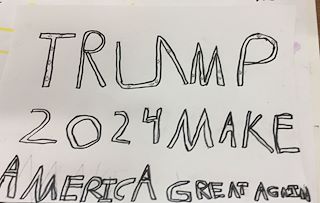 TRUMP
2024 MAKE
AMERICA GREAT AGAIN